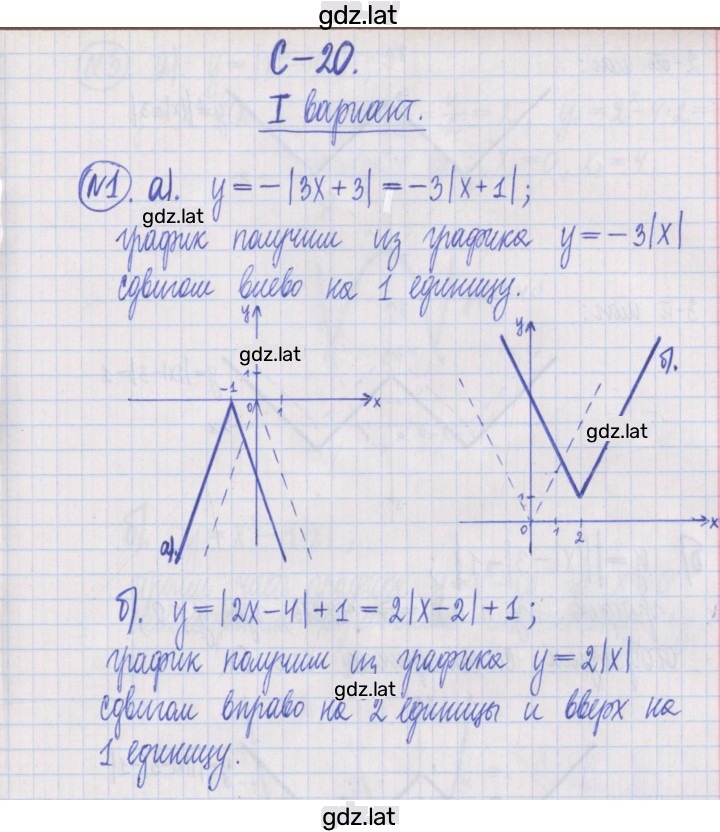 gdz.lat
С-20.
I вариант.
№1. а). y = -|3x+3| = -3|x+1|;
gdz.lat
график получим из графика y = -3|x|
сдвигом влево на 1 единицу.
y
y
gdz.lat
1
б).
-1
0
1
x
gdz.lat
а).
1
0
1
2
x
б). y = |2x-4|+1 = 2|x-2|+1;
график получим из графика y = 2|x|
gdz.lat
сдвигом вправо на 2 единицы и вверх на
1 единицу.
gdz.lat